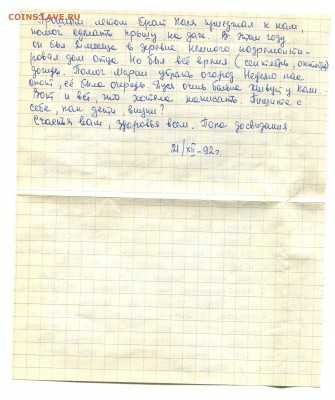 COINSS.RU
Прошлым летом брат Коля приезжал к нам,
помог сделать крышу на даче. В этом году
он был 2 месяца в деревне. Немного подремонти-
ровал дом отца. Но был всё время (сентябрь, октябрь)
дождь. Помог Марии убрать огород. Неделю нас
её была очередь. Дуся очень больна. Живут у Кати.
Вот и всё, что хотела написать. Пишите о
себе, как дети, внуки?
Счастья вам, здоровья всем. Пока до свидания.
21/XII-92г.